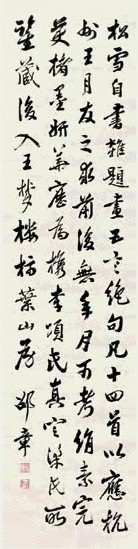 松雪自書雜題畫五言絕句凡十四首以應杭
州王月友之求前後無年月可考絹素完
美楮墨妍華應為檇李項氏真定梁氏所
鑒藏後入王夢樓快葉山房 邵章